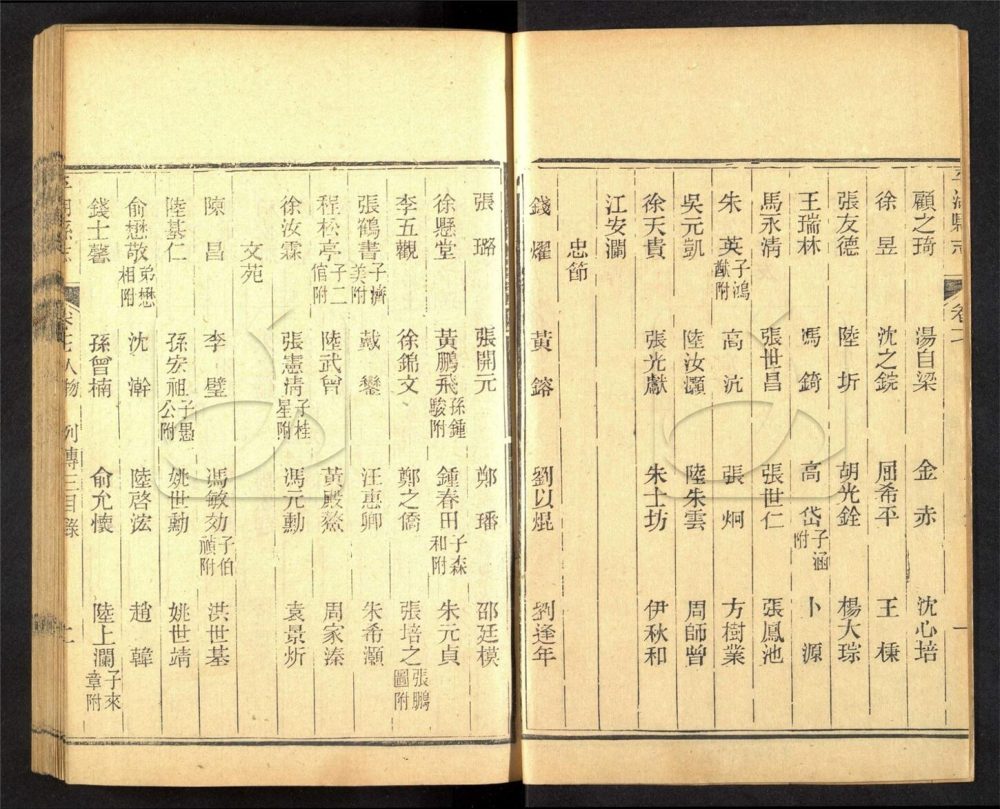 平湖縣志　卷十七　一
顧之琦　湯自梁　金赤　沈心培
徐昱　沈之鋐　屈希平　王棟
張友德　陸圻　胡光銓　楊大琮
王瑞林　馮錡　高岱子涵附　卜源
馬永清　張世昌　張世仁　張鳳池
朱英子鴻猷附　高沆　張炯　方樹業
吳元凱　陸汝灝　陸朱雲　周師曾
徐天貴　張光獻　朱士坊　伊秋和
江安瀾
忠節
錢燿　黃鎔　劉以焜　劉逢年
張璐　張開元　鄭璠　邵廷模
徐懸堂　黃鵬飛孫鍾駿附　鍾春田子森和附　朱元貞
李五觀　徐錦文　鄭之僑　張培之張鵬圖附
張鶴書子濟美附　戴鑾　汪惠卿　朱希灝
程松亭子二倌附　陸武曾　黃殿鰲　周家溱
徐汝霖　張憲清子桂星附　馮元勳　袁景炘
文苑
陳昌　李璧　馮敏効子伯禎附　洪世基
陸基仁　孫宏祖子愚公附　姚世勳　姚世靖
俞懋敬弟懋相附　沈澣　陸啓浤　趙韓
錢士馨　孫曾楠　俞允懷　陸上瀾子來章附
平湖縣志　卷十七人物　列傳三目錄　二